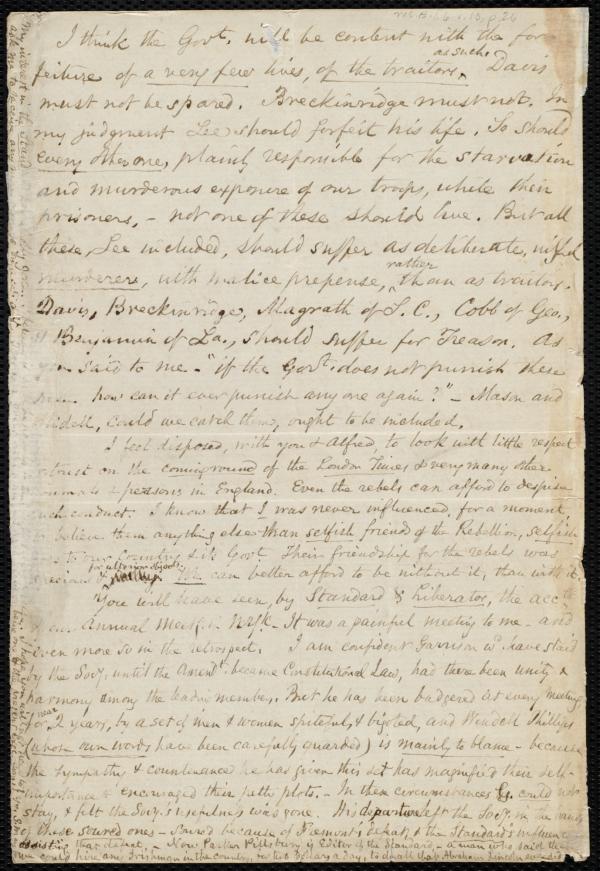 I think the Govt. will be content with the for-
feiture of a very few lives, of the traitors, as such. Davis
must not be spared. Breckinridge must not. In
my judgment Lee should forfeit his life. So should
every other one, plainly responsible for the starvation
and murderous exposure of our troops, while their
prisoners, – not one of these should live. But all
these, Lee included, should suffer as deliberate, wilful
murderers, with malice prepense, rather than as traitors.
Davis, Breckinridge, Magrath of S. C., Cobb of Geo.,
Benjamin of La., should suffer for Treason. As
you said to me – "if the Govt. does not punish these
how can it ever punish any one again?" – Mason and
Slidell, could we catch them, ought to be included.
I feel disposed, with you & Alfred, to look with little respect
or trust on the coming round of the London Times & very many other
journals & persons in England. Even the rebels can afford to despise
such conduct. I know that I was never influenced, for a moment
to believe them anything else than selfish friends of the Rebellion, selfish
to our Country & its Govt. Their friendship for the rebels was
for ulterior objects We can better afford to be without it, than with it.
You will have seen, by Standard & Liberator, the acct.
Annual Meetg. in N. York. – It was a painful meeting to me – and
even more so in the retrospect. I am confident Garrison wd. have staid
by the Socy. until the Amendt. became Constitutional Law, had there been unity &
harmony among the leading members. But he has been badgered at every meeting
for near 2 years, by a set of men & women spiteful & bigoted, and Wendell Phillips
(whose own words have been carefully guarded) is mainly to blame – because
the sympathy & countenance he has given this set has magnified their self-
importance & encouraged their petty plots. – In these circumstances G. could not
stay, & felt the Socy.'s usefulness was gone. His departure left the Socy. in the hands
of these soured ones – soured because of Fremont's defeat, & the Standard's influence
assisting that defeat. – Now Parker Pillsbury is Editor of the Standard – a man who said the
could hire any Irishman in the country, for two dollars a day, to do all that Abraham Lincoln